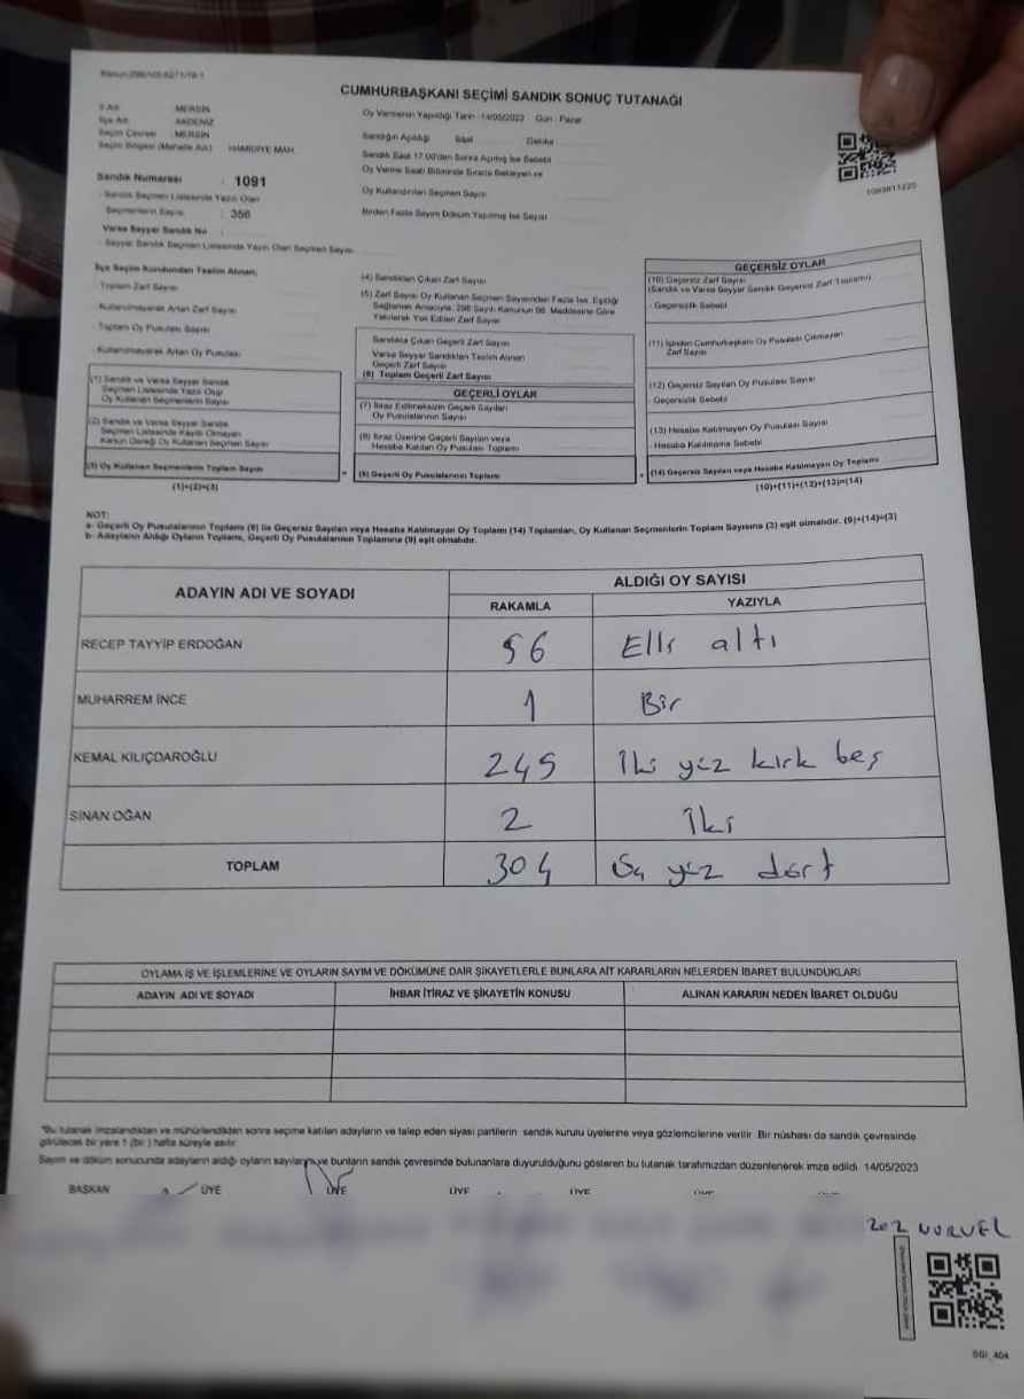 CUMHURBAŞKANI SEÇİMİ SANDIK SONUÇ TUTANAĞI
Oy Vermenin Yapıldığı Tarih : 14/05/2023 Gün : Pazar
MERSİN
İlçe Adı AKDENİZ
Seçim Çevresi MERSİN
Seçim Bölgesi (Mahalle Adı) HAMİDİYE MAH.
Sandığın Açıldığı Saat Dakika
Sandık Saat 17.00'den Sonra Açılmış İse Sebebi
Oy Verme Saati Bitiminde Sırada Bekleyen ve
Oy Kullandırılan Seçmen Sayısı
Birden Fazla Sayım Döküm Yapılmış İse Sayısı
Sandık Numarası : 1091
Sandık Seçmen Listesinde Yazılı Olan
Seçmenlerin Sayısı : 356
Varsa Seyyar Sandık No
Seyyar Sandık Seçmen Listesinde Yazılı Olan Seçmen Sayısı
İlçe Seçim Kurulundan Teslim Alınan;
Toplam Zarf Sayısı
Kullanılmayarak Artan Zarf Sayısı
Toplam Oy Pusulası Sayısı
Kullanılmayarak Artan Oy Pusulası
(1) Sandık ve Varsa Seyyar Sandık
Seçmen Listesinde Yazılı Olup
Oy Kullanan Seçmenlerin Sayısı
(2) Sandık ve Varsa Seyyar Sandık
Seçmen Listesinde Kayıtlı Olmayan
Kanun Gereği Oy Kullanan Seçmen Sayısı
(3) Oy Kullanan Seçmenlerin Toplam Sayısı
(1)+(2)=(3)
(4) Sandıktan Çıkan Zarf Sayısı
(5) Zarf Sayısı Oy Kullanan Seçmen Sayısından Fazla İse, Eşitliği
Sağlamak Amacıyla, 298 Sayılı Kanunun 98. Maddesine Göre
Yakılarak Yok Edilen Zarf Sayısı
Sandıkta Çıkan Geçerli Zarf Sayısı
Varsa Seyyar Sandıktan Teslim Alınan
Geçerli Zarf Sayısı
(6) Toplam Geçerli Zarf Sayısı
GEÇERLİ OYLAR
(7) İtiraz Edilmeksizin Geçerli Sayılan
Oy Pusulalarının Sayısı
(8) İtiraz Üzerine Geçerli Sayılan veya
Hesaba Katılan Oy Pusulası Toplamı
(9) Geçerli Oy Pusulalarının Toplamı
GEÇERSİZ OYLAR
(10) Geçersiz Zarf Sayısı
(Sandık ve Varsa Seyyar Sandık Geçersiz Zarf Toplamı)
Geçersizlik Sebebi
(11) İçinden Cumhurbaşkanı Oy Pusulası Çıkmayan
Zarf Sayısı
(12) Geçersiz Sayılan Oy Pusulası Sayısı
Geçersizlik Sebebi
(13) Hesaba Katılmayan Oy Pusulası Sayısı
Hesaba Katılmama Sebebi
(14) Geçersiz Sayılan veya Hesaba Katılmayan Oy Toplamı
(10)+(11)+(12)+(13)=(14)
NOT:
a- Geçerli Oy Pusulalarının Toplamı (9) ile Geçersiz Sayılan veya Hesaba Katılmayan Oy Toplamı (14) Toplamları, Oy Kullanan Seçmenlerin Toplam Sayısına (3) eşit olmalıdır. (9)+(14)=(3)
b- Adayların Aldığı Oyların Toplamı, Geçerli Oy Pusulalarının Toplamına (9) eşit olmalıdır.
ADAYIN ADI VE SOYADI ALDIĞI OY SAYISI
RAKAMLA YAZIYLA
RECEP TAYYİP ERDOĞAN 56 Elli altı
MUHARREM İNCE 1 Bir
KEMAL KILIÇDAROĞLU 245 İki yüz kırk beş
SİNAN OĞAN 2 İki
TOPLAM 304 üç yüz dört
OYLAMA İŞ VE İŞLEMLERİNE VE OYLARIN SAYIM VE DÖKÜMÜNE DAİR ŞİKAYETLERLE BUNLARA AİT KARARLARIN NELERDEN İBARET BULUNDUKLARI
ADAYIN ADI VE SOYADI İHBAR İTİRAZ VE ŞİKAYETİN KONUSU ALINAN KARARIN NEDEN İBARET OLDUĞU
*Bu tutanak imzalandıktan ve mühürlendikten sonra seçime katılan adayların ve talep eden siyasi partilerin sandık kurulu üyelerine veya gözlemcilerine verilir. Bir nüshası da sandık çevresinde
görülecek bir yere 1 (bir) hafta süreyle asılır.
Sayım ve döküm sonucunda adayların aldığı oyların sayılarını ve bunların sandık çevresinde bulunanlara duyurulduğunu gösteren bu tutanak tarafımızdan düzenlenerek imza edildi. 14/05/2023
BAŞKAN ÜYE ÜYE ÜYE ÜYE
202 NORVEL